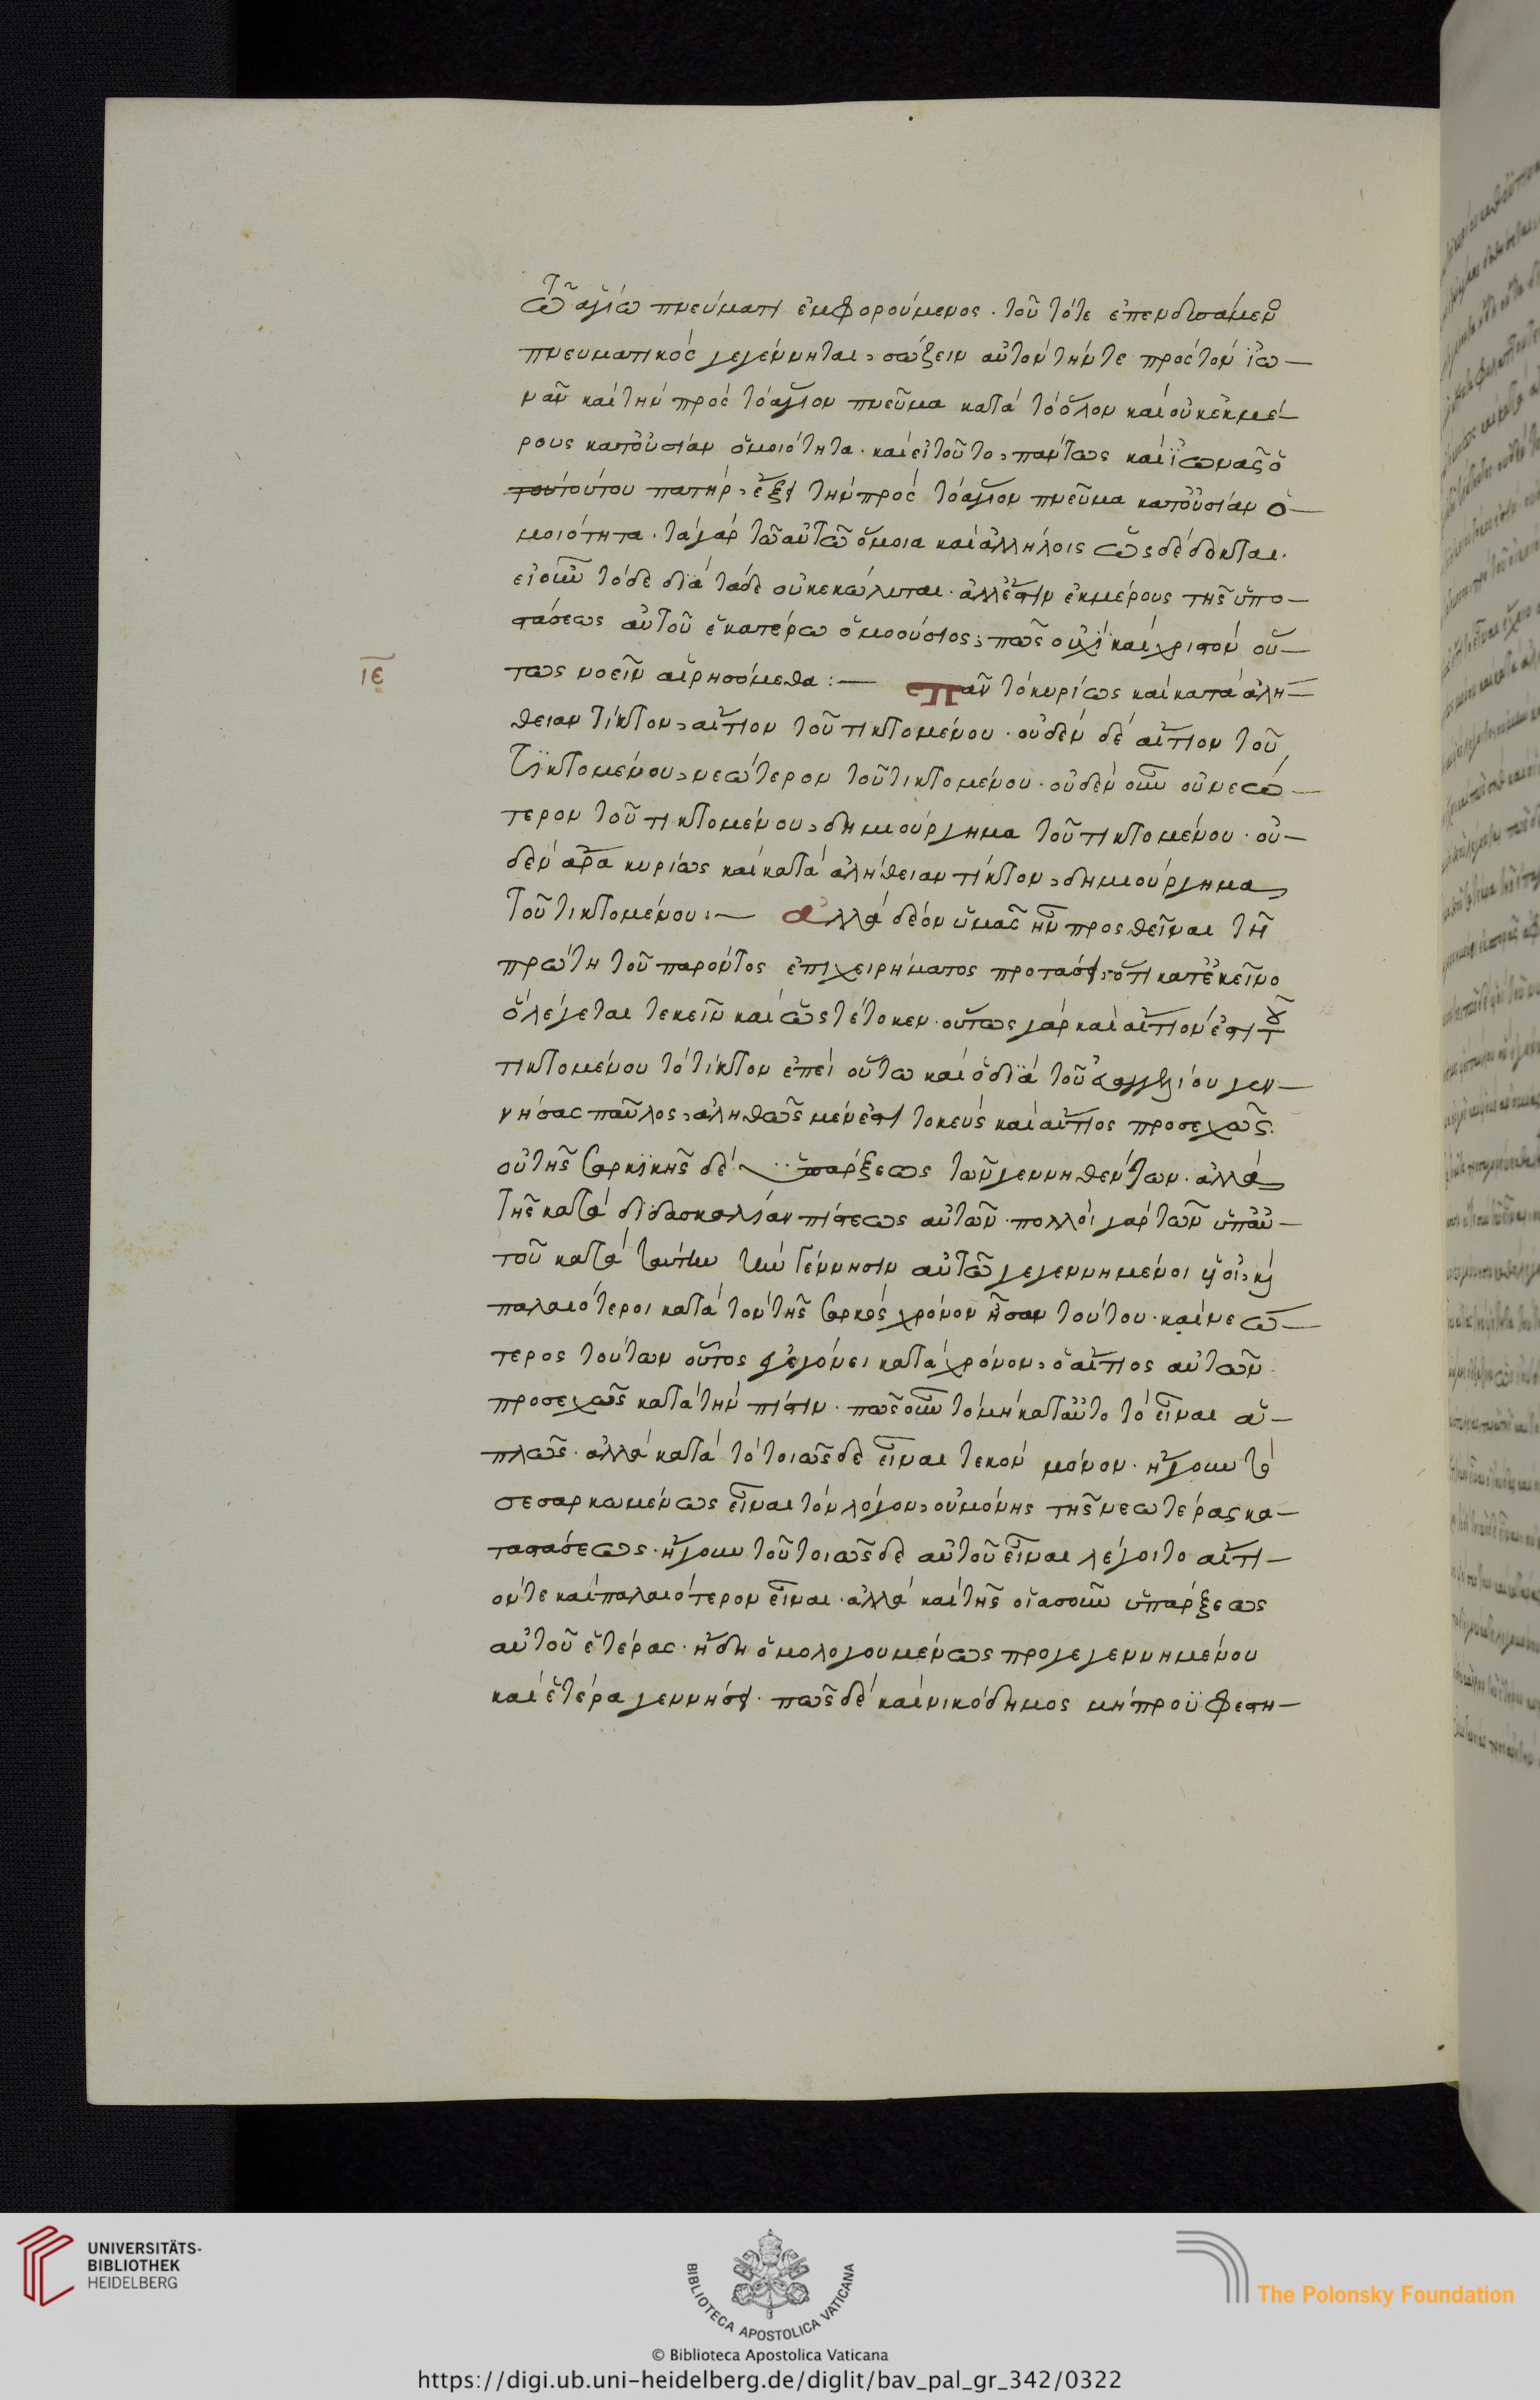 τῶ ἁγίω πνεύματι ἐμφορούμενος. τοῦ τότε ἐπενδυσάμενος
πνευματικὸς γεγέννηται, σώζειν αὐτὸν τήν τε πρὸς τὸν ἰω-
νᾶν καὶ τὴν πρὸς τὸ ἅγιον πνεῦμα κατὰ τὸ ὅλον καὶ οὐκ ἐκ μέ-
ρους κατ' οὐσίαν ὁμοιότητα. καὶ εἰ τοῦτο, πάντως καὶ ἰωνᾶς ὁ
τούτου πατὴρ, ἕξει τὴν πρὸς τὸ ἅγιον πνεῦμα κατ' οὐσίαν ὁ-
μοιότητα. τὰ γὰρ τῶ αὐτῶ ὅμοια καὶ ἀλλήλοις ὡς δέδεικται.
εἰ οὖν τόδε διὰ τάδε οὐ κεκώλυται. ἀλλ' ἔστιν ἐκ μέρους τῆς ὑπο-
στάσεως αὐτοῦ ἑκατέρω ὁμοούσιος, πῶς οὐχὶ καὶ χριστὸν οὕ-
τως νοεῖν αἱρησόμεθα :—
ιε
Πᾶν τὸ κυρίως καὶ κατὰ ἀλή-
θειαν τίκτον, αἴτιον τοῦ τικτομένου. οὐδὲν δὲ αἴτιον τοῦ
τικτομένου, νεώτερον τοῦ τικτομένου. οὐδὲν οὖν οὐ νεώ-
τερον τοῦ τικτομένου, δημιούργημα τοῦ τικτομένου. οὐ-
δὲν ἄρα κυρίως καὶ κατὰ ἀλήθειαν τίκτον, δημιούργημα
τοῦ τικτομένου :— ἀλλὰ δέον ὑμᾶς ἦν προσθεῖναι τῆ
πρώτη τοῦ παρόντος ἐπιχειρήματος προτάσει, ὅτι κατ' ἐκεῖνο
ὃ λέγεται τεκεῖν καὶ ὡς τέτοκεν. οὕτως γὰρ καὶ αἴτιόν ἐστι τοῦ
τικτομένου τὸ τίκτον ἐπεὶ οὕτω καὶ ὁ διὰ τοῦ εὐαγγελίου γεν-
νήσας παῦλος, ἀληθῶς μέν ἐστι τοκεὺς καὶ αἴτιος προσεχῶς.
οὐ τῆς σαρκικῆς δὲ ὑπάρξεως τῶν γεννηθέντων. ἀλλὰ
τῆς κατὰ διδασκαλίαν πίστεως αὐτῶν. πολλοὶ γὰρ τῶν ὑπ' αὐ-
τοῦ κατὰ ταύτην τὴν γέννησιν αὐτῶ γεγεννημένοι υἱοὶ, καὶ
παλαιότεροι κατὰ τὸν τῆς σαρκὸς χρόνον ἦσαν τούτου. καὶ νεώ-
τερος τούτων οὗτος γεγόνει κατὰ χρόνον, ὁ αἴτιος αὐτῶν
προσεχῶς κατὰ τὴν πίστιν. πῶς οὖν τὸ μὴ κατ' αὐτὸ τὸ εἶναι ἁ-
πλῶς. ἀλλὰ κατὰ τὸ τοιῶσδε εἶναι τεκὸν μόνον. ἤγουν τὸ
σεσαρκωμένως εἶναι τὸν λόγον, οὐ μόνης τῆς νεωτέρας κα-
ταστάσεως. ἤγουν τοῦ τοιῶσδε αὐτοῦ εἶναι λέγοιτο αἴτι-
όν τε καὶ παλαιότερον εἶναι. ἀλλὰ καὶ τῆς οἱασοῦν ὑπάρξεως
αὐτοῦ ἑτέρας. ἤδη ὁμολογουμένως προγεγεννημένου
καὶ ἑτέρα γεννήσει. πῶς δὲ καὶ νικόδημος μὴ προϋφεστη-
UNIVERSITÄTS-
BIBLIOTHEK
HEIDELBERG
BIBLIOTECA APOSTOLICA VATICANA
The Polonsky Foundation
© Biblioteca Apostolica Vaticana
https://digi.ub.uni-heidelberg.de/diglit/bav_pal_gr_342/0322